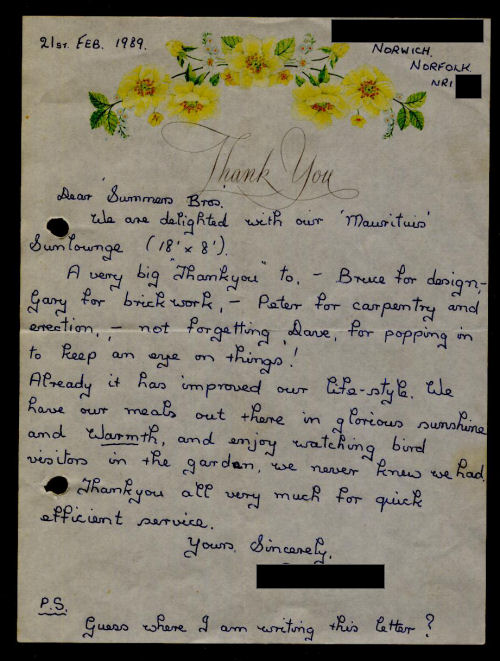 21st. FEB. 1989.
NORWICH.
NORFOLK.
NR1
Thank You
Dear Summers Bros.
We are delighted with our 'Mauritius'
Sunlounge (18' x 8').
A very big "Thankyou" to, - Bruce for design,-
Gary for brickwork, - Peter for carpentry and
erection, - not forgetting Dave, for popping in
to keep an eye on things!
Already it has improved our life-style. We
have our meals out there in glorious sunshine
and warmth, and enjoy watching bird
visitors in the garden, we never knew we had.
Thankyou all very much for quick
efficient service.
Yours Sincerely,
P.S.
Guess where I am writing this letter?